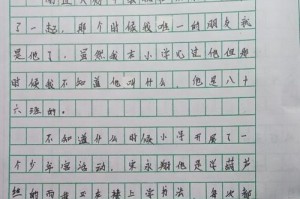 了一起，那个时候我唯一的朋友就
是他了。虽然我在小学见过他但那
时候我不知道他叫什么，他是八十
六班的。
不知道什么时候小学开展了一
个少年宫活动，宋永翔他是学葫芦
丝的而我正在楼上学书法，每次都